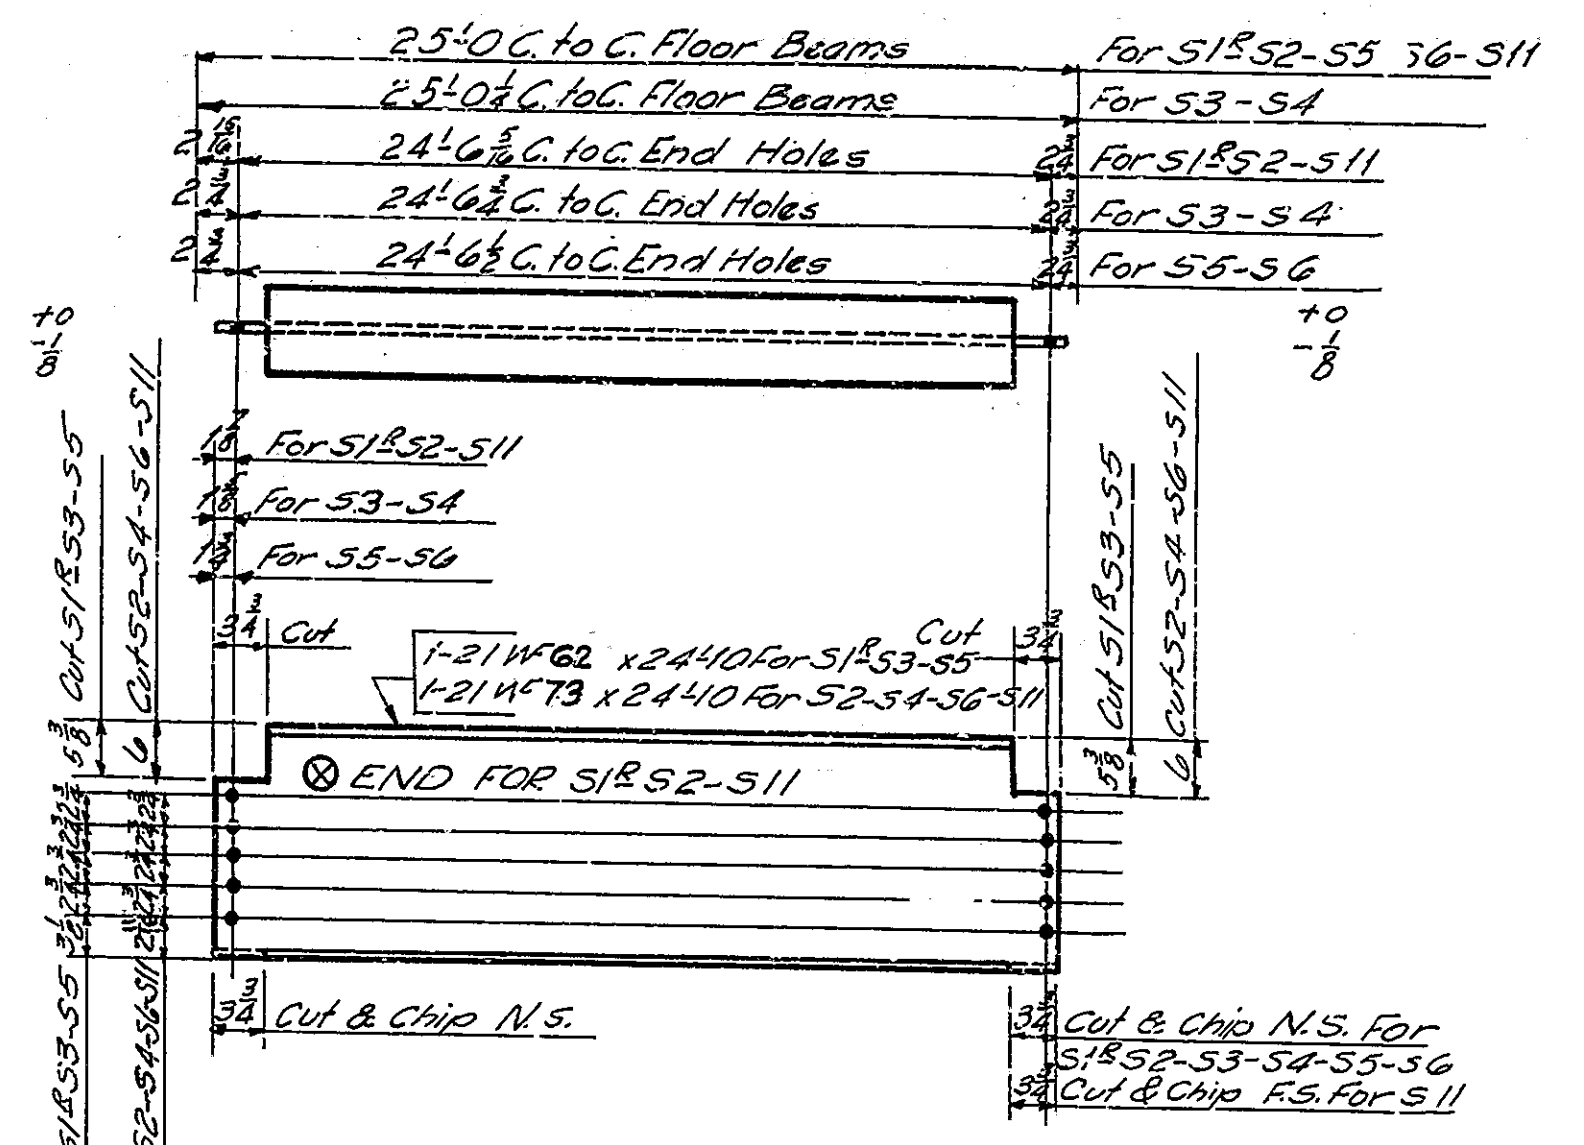 25'-0 C. to C. Floor Beams For S1ᴿ S2-S5 S6-S11
25'-0 1/4 C. to C. Floor Beams For S3-S4
24'-6 5/16 C. to C. End Holes 2 3/4 For S1ᴿ S2-S11
2 3/4 24'-6 1/4 C. to C. End Holes 2 3/4 For S3-S4
2 3/4 24'-6 1/2 C. to C. End Holes 2 3/4 For S5-S6
+0
1/8
+0
- 1/8
Cut S1ᴿ S3-S5
Cut S2-S4-S6-S11
1 7/8 For S1ᴿ S2-S11
For S3-S4
1 3/4 For S5-S6
Cut S1ᴿ S3-S5
Cut S2-S4-S6-S11
3 3/4 Cut
Cut 3 3/4
1-21 WF 62 x 24'-10 For S1ᴿ-S3-S5
1-21 WF 73 x 24'-10 For S2-S4-S6-S11
5 3/8
6
5 3/8
6
⊗ END FOR S1ᴿ S2-S11
2 3/4 2 3/4 2 3/4 2 3/4 3 1/2
2 3/4 2 3/4 2 3/4 2 3/4 2 11/16
S1ᴿ S3-S5
S2-S4-S6-S11
3 3/4 Cut & Chip N.S.
3 3/4 Cut & Chip N.S. For
S1ᴿ S2-S3-S4-S5-S6
3 3/4 Cut & Chip F.S. For S11